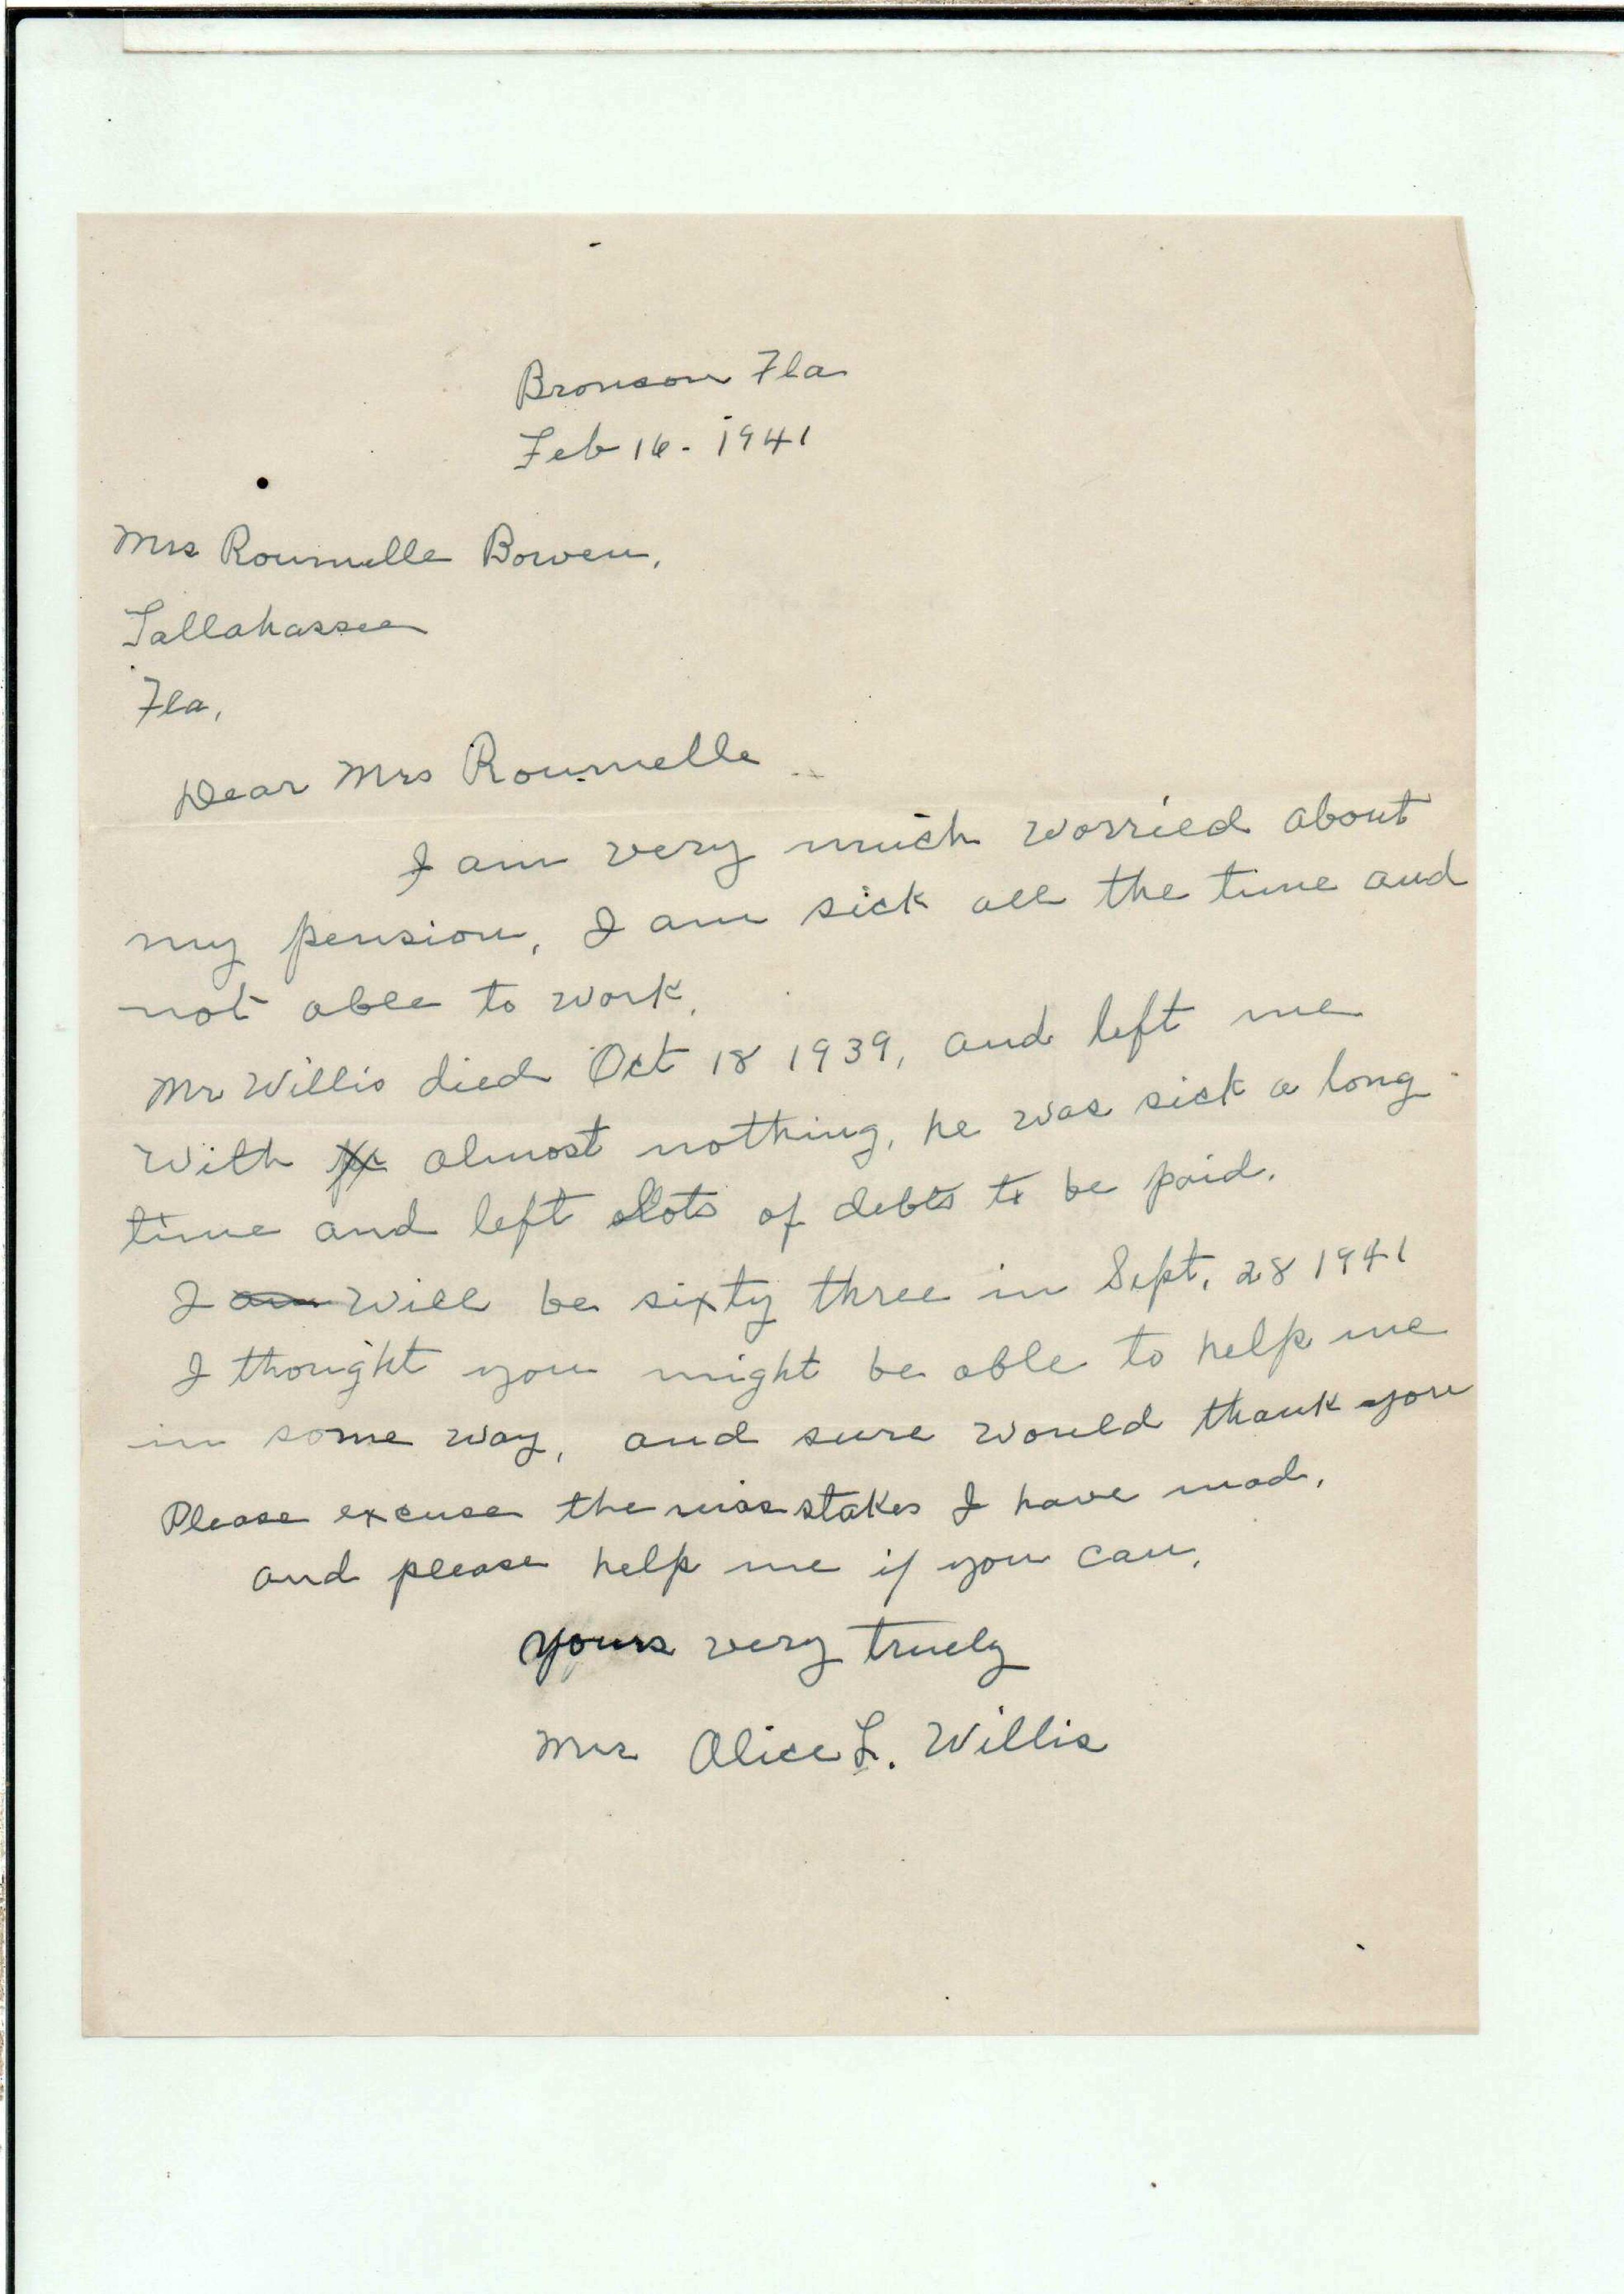 Bronson Fla
Feb 16 - 1941
Mrs Roumelle Bowen,
Tallahassee
Fla,
Dear Mrs Roumelle
I am very much worried about
my pension, I am sick all the time and
not able to work.
Mr Willis died Oct 18 1939, and left me
With almost nothing, he was sick a long
time and left lots of debts to be paid.
I am will be sixty three in Sept, 28 1941
I thought you might be able to help me
in some way, and sure would thank you
Please excuse the misstakes I have mad,
and please help me if you can,
yours very truely
Mrs Alice L. Willis